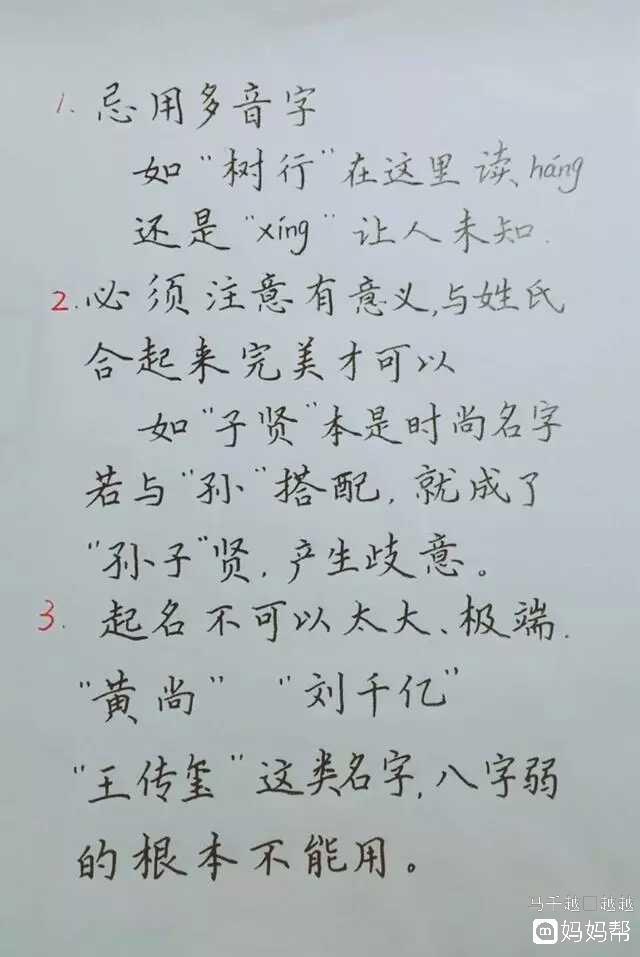 1. 忌用多音字
如"树行"在这里读háng
还是"xíng"让人未知.
2. 必须注意有意义,与姓氏
合起来完美才可以
如"子贤"本是时尚名字
若与"孙"搭配,就成了
"孙子"贤,产生歧意。
3. 起名不可以太大、极端.
"黄尚" "刘千亿"
"王传玺"这类名字,八字弱
的根本不能用。
马千越□越越
妈妈帮